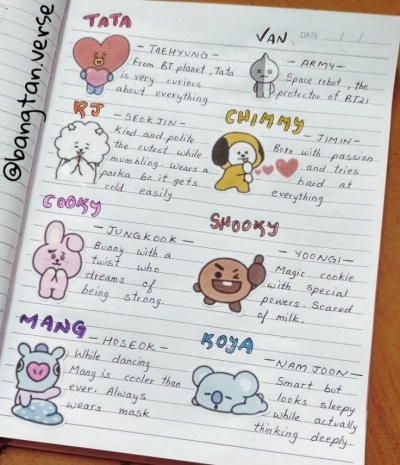 @bangtan.verse
TATA
- TAEHYUNG -
From BT planet, Tata
is very curious
about everything
VAN
DATE / /
- ARMY -
Space robot, the
protector of BT21
RJ
- SEOKJIN -
Kind and polite
the cutest while
mumbling. Wears a
parka bc it gets
cold easily
CHIMMY
- JIMIN -
Born with passion
and tries
hard at
everything
COOKY
- JUNGKOOK -
Bunny with a
twist who
dreams of
being strong.
SHOOKY
- YOONGI -
Magic cookie
with special
powers. Scared
of milk.
MANG
- HOSEOK -
While dancing
Mang is cooler than
ever. Always
wears mask
KOYA
- NAMJOON -
Smart but
looks sleepy
while actually
thinking deeply..